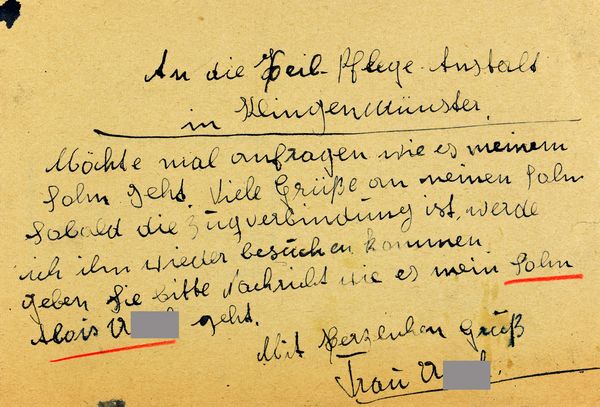 An die Heil-Pflege-Anstalt
in Klingenmünster.
Möchte mal anfragen wie es meinem
Sohn geht. Viele Grüße an meinen Sohn
Sobald die Zugverbindung ist, werde
ich ihn wieder besuchen kommen
geben Sie bitte Nachricht wie es mein Sohn
Alois geht.
Mit Herzlichen Gruß
Frau